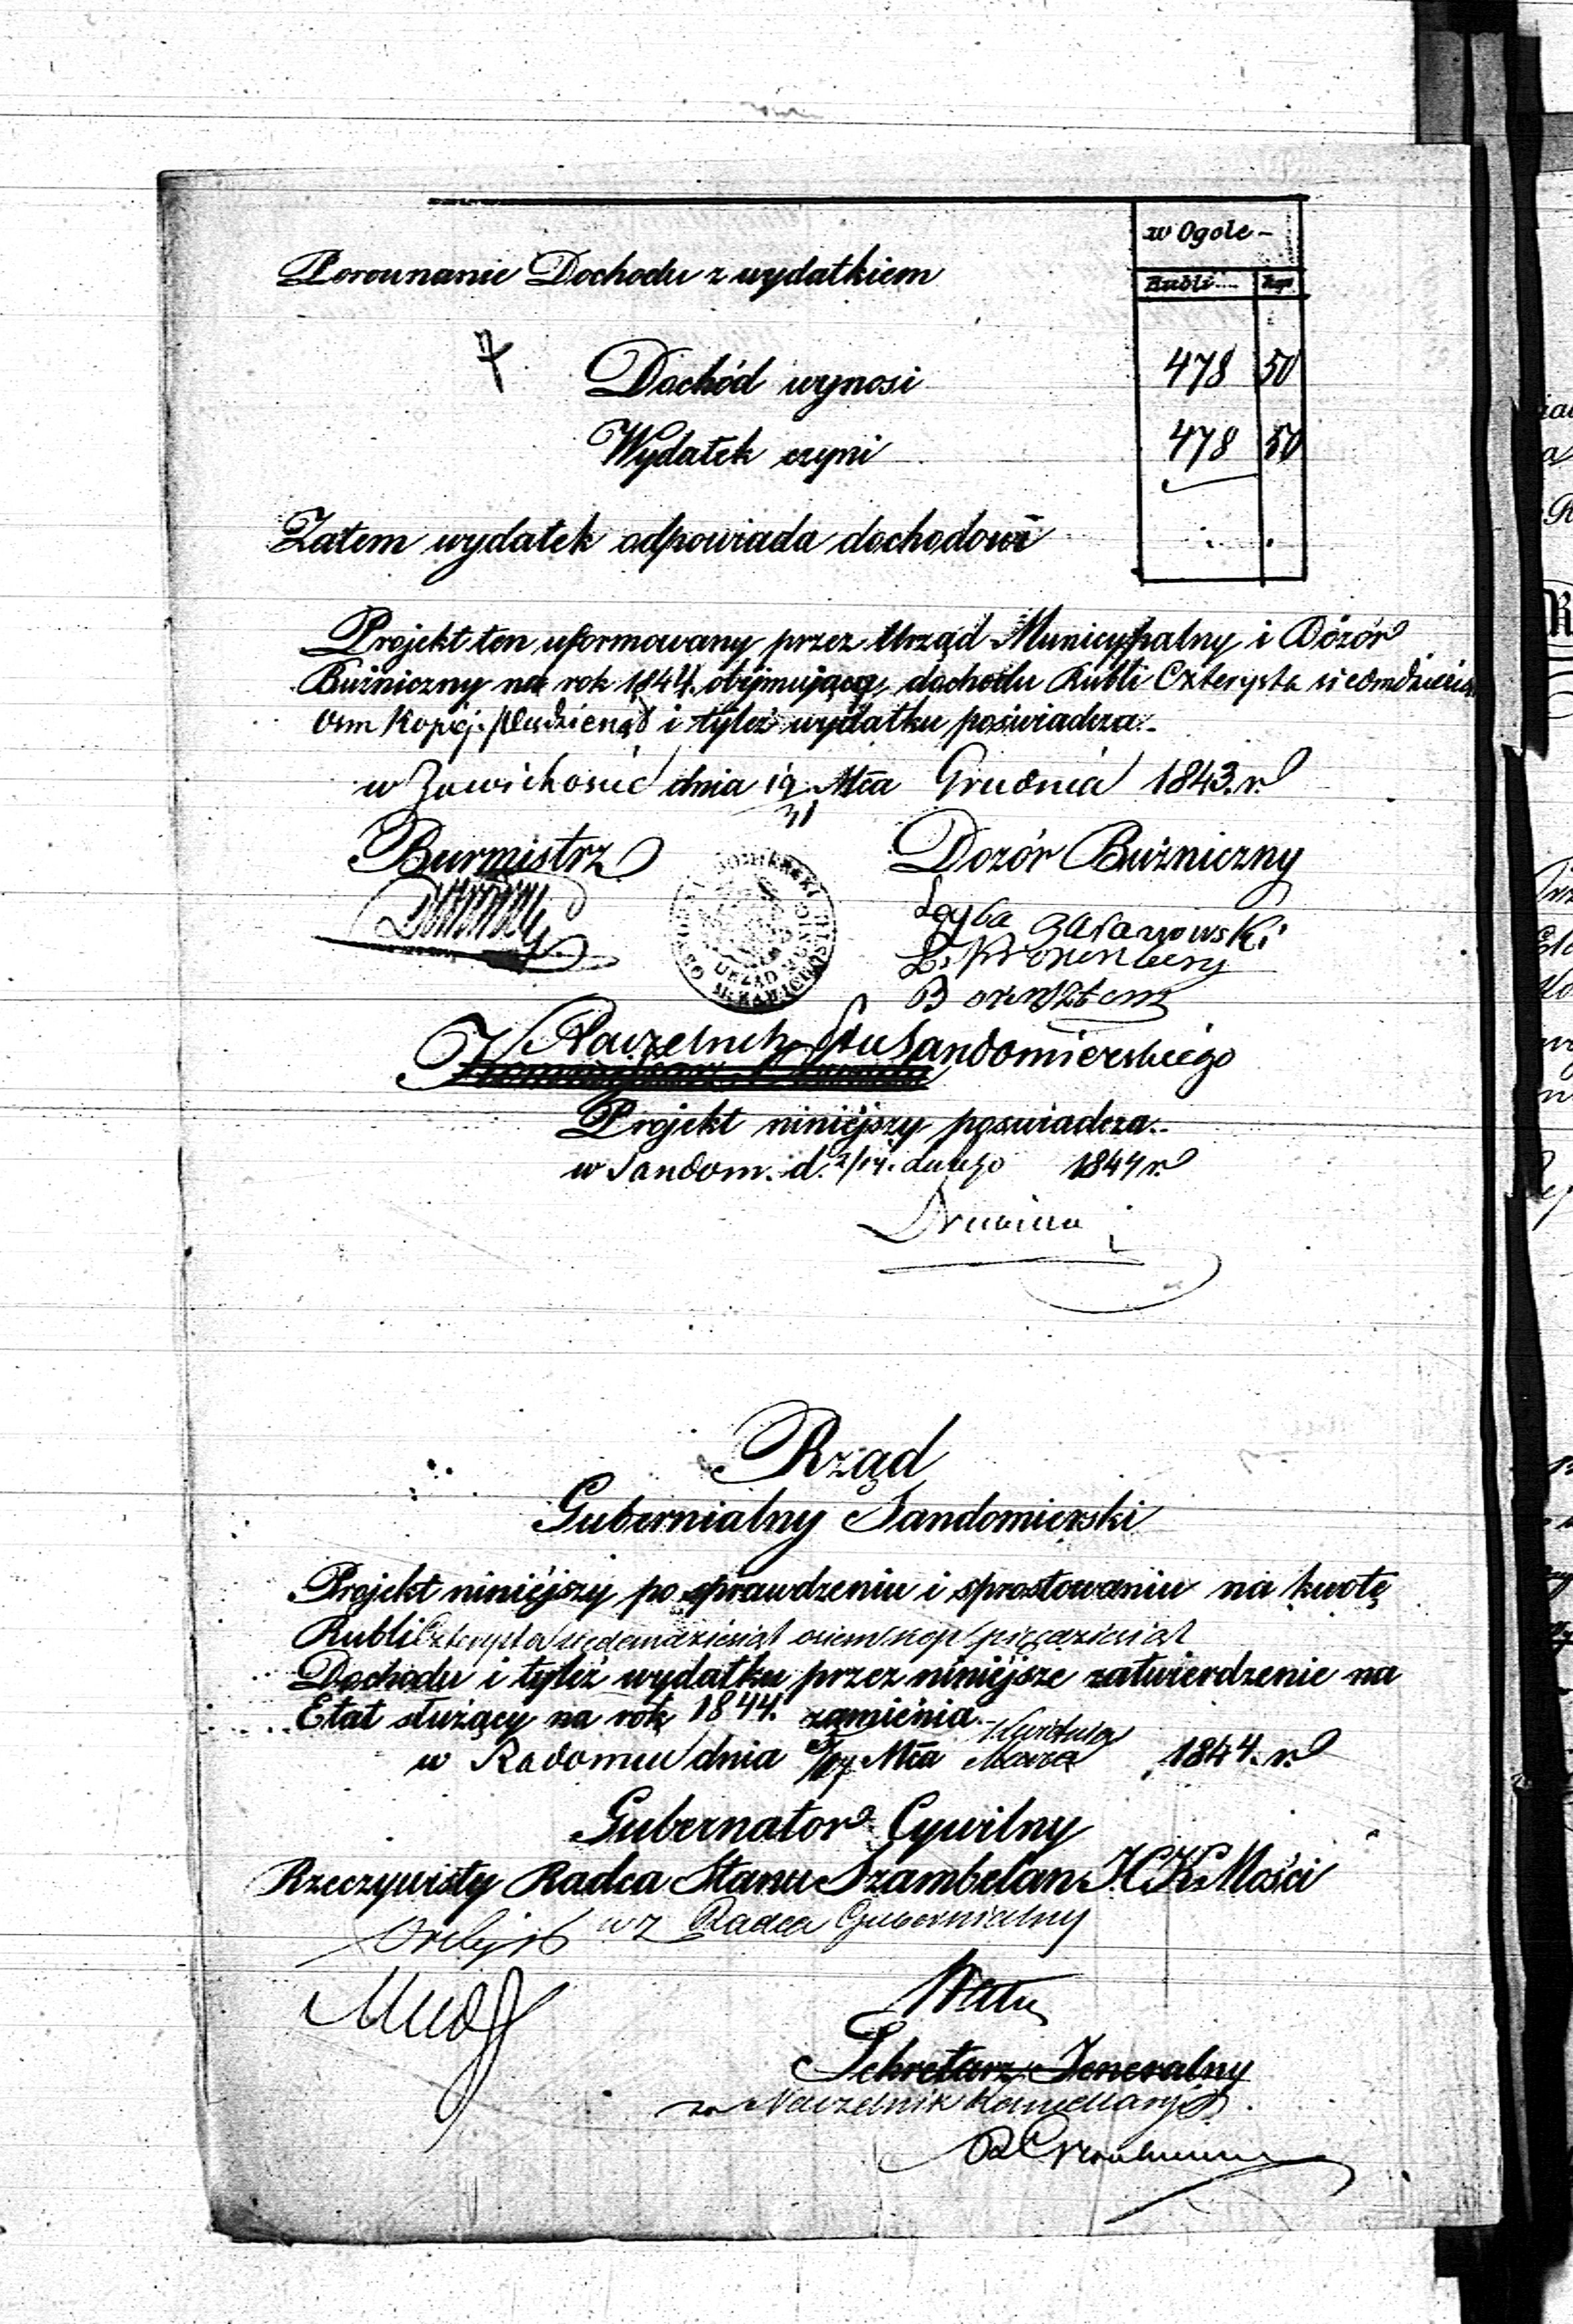 w Ogole
Porownanie Dochodu z wydatkiem
Rubli Kop
Dochód wynosi 478 50
Wydatek czyni 478 50
Zatem wydatek odpowiada dochodowi
Projekt ten uformowany przez Urząd Municypalny i Dózór
Bużniczny na rok 1844. obejmujący dochodu Rubli Czterysta siedmdziesiąt
Osm Kopiej. i tyleż wydatku poświadcza.
w Zawichoscie dnia 19/31 Mca Grudnia 1843. r.
Burmistrz Dozór Bużniczny
URZĄD MUNIC
M. ZAWICHOSTU
Borensztem
Naczelnik Ptu Sandomierskiego
Projekt niniejszy poswiadcza.
w Sandom. d. 2/14. Lutego 1844 r.
Rząd
Gubernialny Sandomierski
Projekt niniejszy po sprawdzeniu i sprostowaniu na kwotę
Rubli Czterysta siedemdziesiąt osiem kop pięcdziesiąt
Dochodu i tyleż wydatku przez niniejsze zatwierdzenie na
Etat służący na rok 1844. zamienia.
Kwietnia
w Radomiu dnia Mca Marca 1844. r.
Gubernator Cywilny
Rzeczywisty Radca Stanu Szambelan J.C.K. Mości
wz Radca Gubernialny
Sekretarz Jeneralny
za Naczelnik Kancellaryi